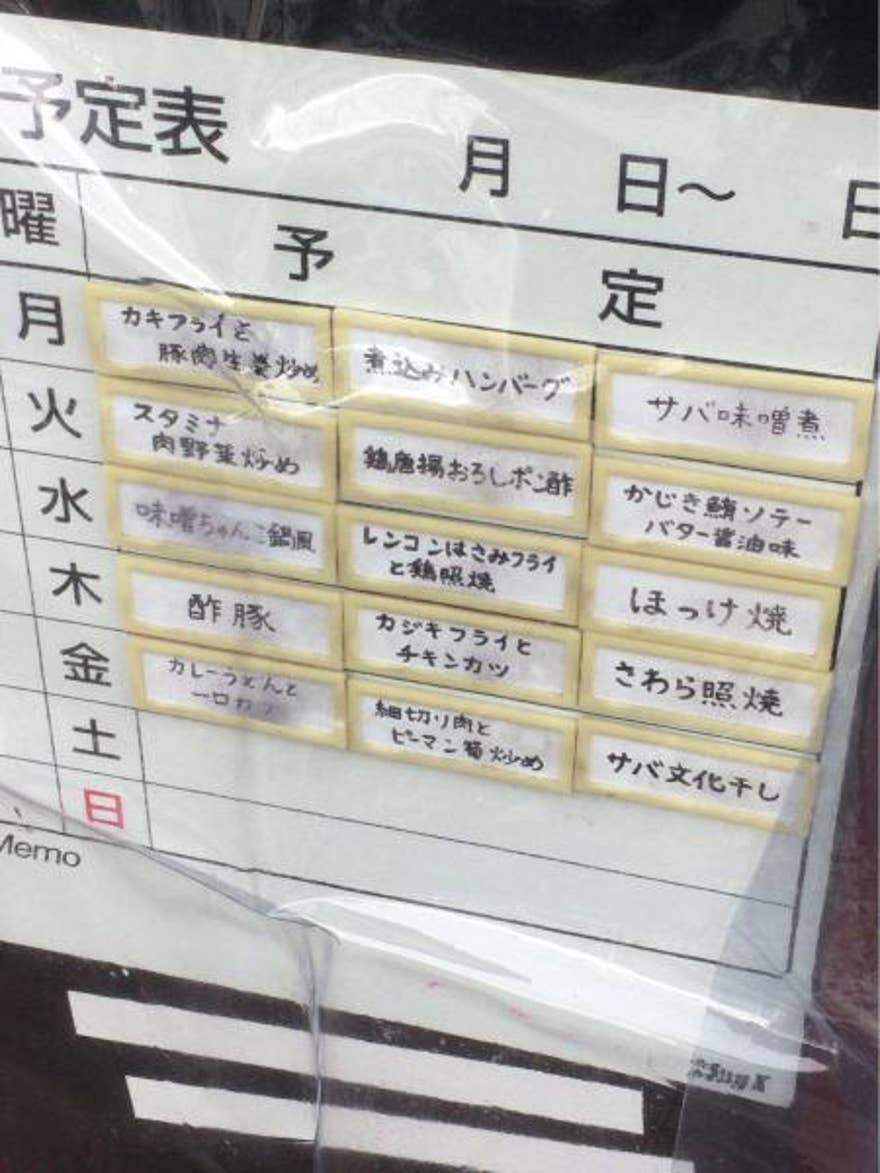 予定表
月 日〜 日
曜 予 定
月
カキフライと
豚肉生姜炒め
煮込みハンバーグ
サバ味噌煮
火
スタミナ
肉野菜炒め
鶏唐揚おろしポン酢
かじき鮪ソテー
バター醤油味
水
味噌ちゃんこ鍋風
レンコンはさみフライ
と鶏照焼
ほっけ焼
木
酢豚
カジキフライと
チキンカツ
さわら照焼
金
カレーうどんと
一口カツ
細切り肉と
ピーマン筍炒め
サバ文化干し
土
日
Memo